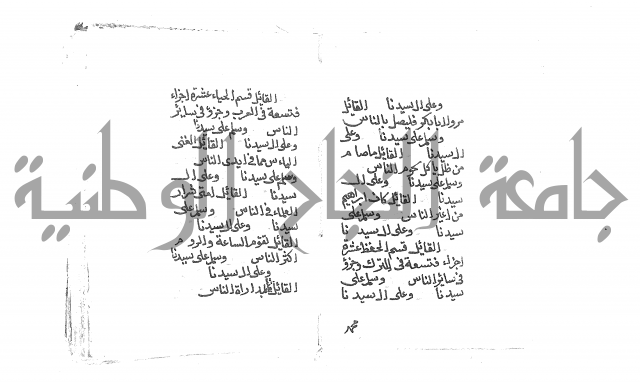 وعلى ال سيدنا القائل
مروا ابا بكر فليصل بالناس
وسلم على سيدنا وعلى
ال سيدنا القائل ما صام
من ظل يأكل لحوم الناس
وسلم على سيدنا وعلى ال
سيدنا القائل كان ابراهيم
من اغير الناس وسلم على
سيدنا وعلى ال سيدنا
القائل قسم الحفظ عشرة
اجزاء فتسعة في الترك وجزؤ
في سائر الناس وسلم على
سيدنا وعلى ال سيدنا
محمد
القائل قسم الحياء عشرة اجزاء
فتسعة في العرب وجزؤ في سائر
الناس وسلم على سيدنا
وعلى ال سيدنا القائل الغنى
الياس مما في ايدي الناس
وسلم على سيدنا وعلى ال
سيدنا القائل
العلماء في الناس وسلم على
سيدنا وعلى ال سيدنا
القائل تقوم الساعة والروم
اكثر الناس وسلم على سيدنا
وعلى ال سيدنا
القائل مداراة الناس
جامعة النجاح الوطنية